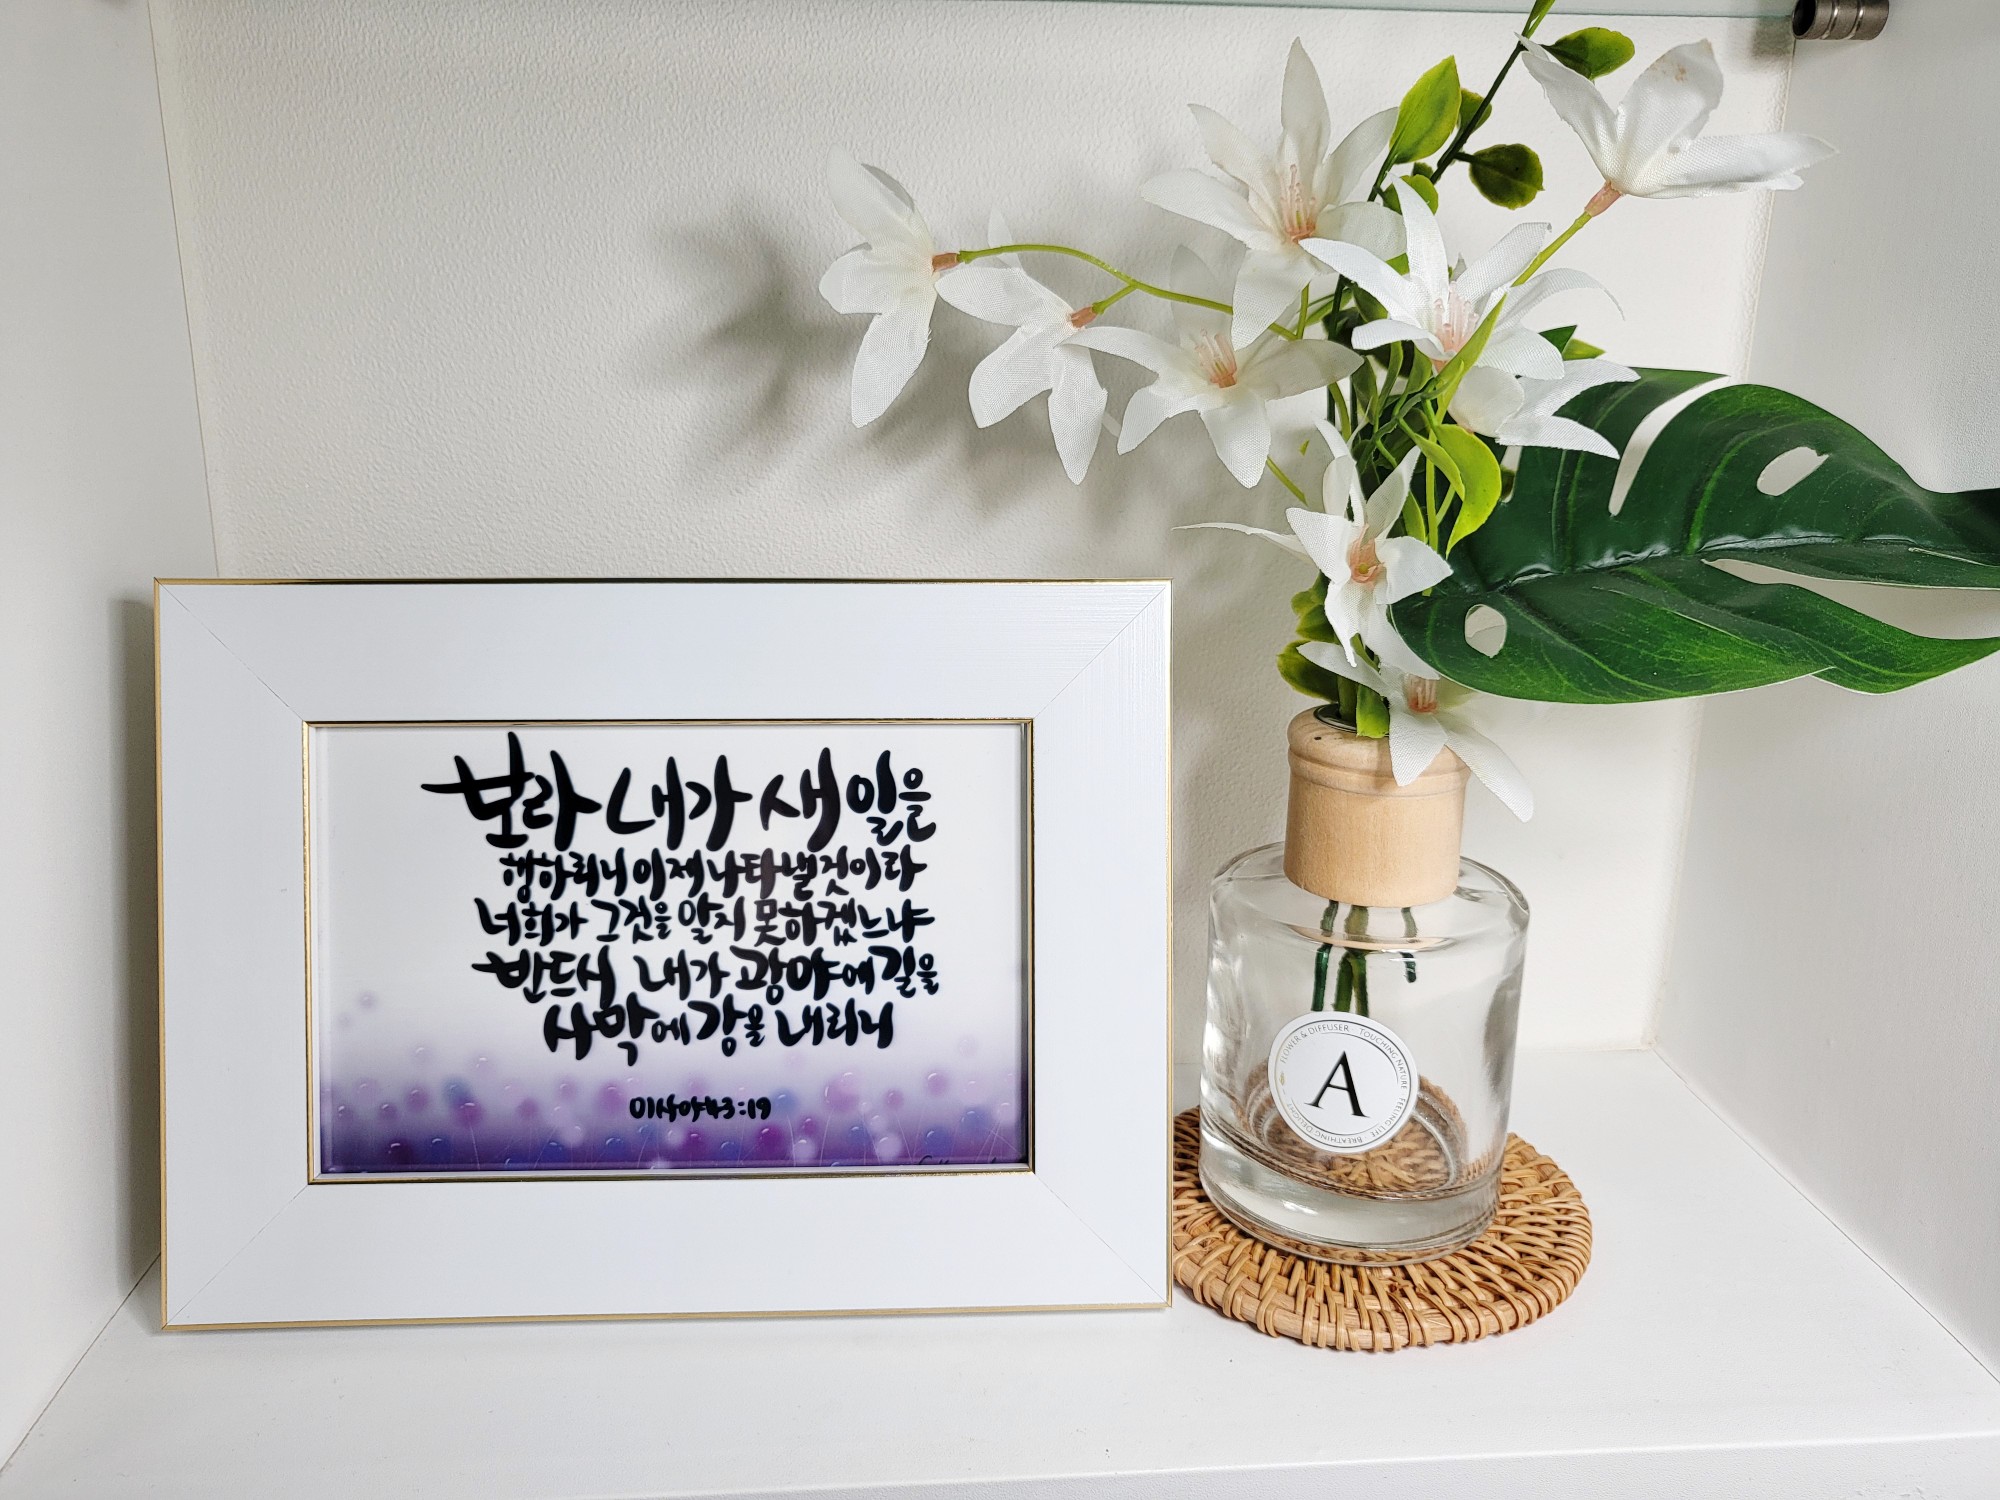 보라 내가 새 일을
행하리니 이제 나타낼 것이라
너희가 그것을 알지 못하겠느냐
반드시 내가 광야에 길을
사막에 강을 내리니
이사야 43:19
FLOWER & DIFFUSER · TOUCHING NATURE · FEELING LIFE · BREATHING DELIGHT
A